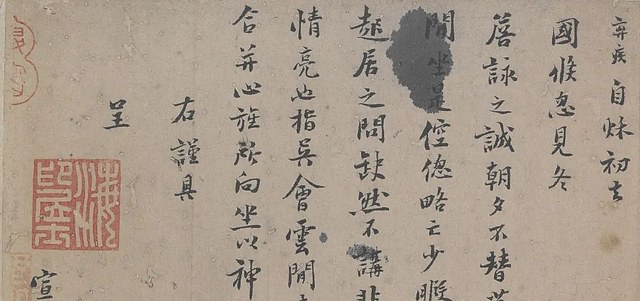 弃疾自秋初去
國倏忽見冬
詹詠之誠朝夕不替
間坐是倥偬略亡少暇
起居之問缺然不講非
情亮也指吳會雲間
合并心旌所向坐以神
右謹具
呈
宣